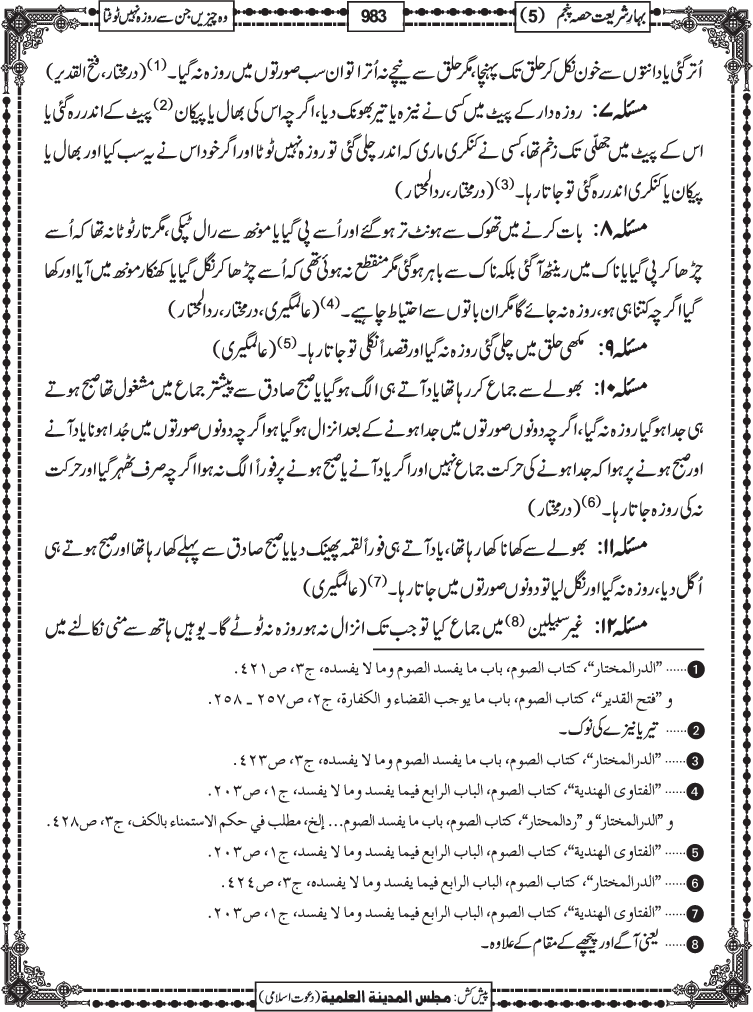 بہارشریعت حصہ پنجم (5)
983
وہ چیزیں جن سے روزہ نہیں ٹوٹتا
اُتر گئی یا دانتوں سے خون نکل کر حلق تک پہنچا، مگر حلق سے نیچے نہ اُترا تو ان سب صورتوں میں روزہ نہ گیا۔(1) (درمختار، فتح القدیر)
مسئلہ ۷: روزہ دار کے پیٹ میں کسی نے نیزہ یا تیر بھونک دیا، اگرچہ اس کی بھال یا پیکان (2) پیٹ کے اندر رہ گئی یا
اس کے پیٹ میں جھلّی تک زخم تھا، کسی نے کنکری ماری کہ اندر چلی گئی تو روزہ نہیں ٹوٹا اور اگر خود اس نے یہ سب کیا اور بھال یا
پیکان یا کنکری اندر رہ گئی تو جاتا رہا۔ (3) (درمختار، ردالمحتار)
مسئلہ ۸: بات کرنے میں تھوک سے ہونٹ تر ہو گئے اور اُسے پی گیا یا مونھ سے رال ٹپکی، مگر تار ٹوٹا نہ تھا کہ اُسے
چڑھا کر پی گیا یا ناک میں رینٹھ آگئی بلکہ ناک سے باہر ہوگئی مگر منقطع نہ ہوئی تھی کہ اُسے چڑھا کر نگل گیا یا کھنکار مونھ میں آیا اور کھا
گیا اگرچہ کتنا ہی ہو، روزہ نہ جائے گا مگر ان باتوں سے احتیاط چاہیے۔ (4) (عالمگیری، درمختار، ردالمحتار)
مسئلہ ۹: مکھی حلق میں چلی گئی روزہ نہ گیا اور قصداً نگلی تو جاتا رہا۔ (5) (عالمگیری)
مسئلہ ۱۰: بھولے سے جماع کر رہا تھا یاد آتے ہی الگ ہوگیا یا صبح صادق سے پیشتر جماع میں مشغول تھا صبح ہوتے
ہی جدا ہوگیا روزہ نہ گیا، اگرچہ دونوں صورتوں میں جدا ہونے کے بعد انزال ہوگیا ہو اگرچہ دونوں صورتوں میں جُدا ہونا یاد آنے
اور صبح ہونے پر ہوا کہ جدا ہونے کی حرکت جماع نہیں اور اگر یاد آنے یا صبح ہونے پر فوراً الگ نہ ہوا اگرچہ صرف ٹھہر گیا اور حرکت
نہ کی روزہ جاتا رہا۔ (6) (درمختار)
مسئلہ ۱۱: بھولے سے کھانا کھا رہا تھا، یاد آتے ہی فوراً لقمہ پھینک دیا یا صبح صادق سے پہلے کھا رہا تھا اور صبح ہوتے ہی
اُگل دیا، روزہ نہ گیا اور نگل لیا تو دونوں صورتوں میں جاتا رہا۔ (7) (عالمگیری)
مسئلہ ۱۲: غیر سبیلین (8) میں جماع کیا تو جب تک انزال نہ ہو روزہ نہ ٹوٹے گا۔ یوہیں ہاتھ سے منی نکالنے میں
1 ...... ”الدرالمختار“، کتاب الصوم، باب ما یفسد الصوم وما لا یفسدہ، ج۳، ص۴۲۱.
و ”فتح القدیر“، کتاب الصوم، باب ما یوجب القضاء و الکفارۃ، ج۲، ص۲۵۷ ـ ۲۵۸.
2 ...... تیر یا نیزے کی نوک۔
3 ...... ”الدرالمختار“، کتاب الصوم، باب ما یفسد الصوم وما لا یفسدہ، ج۳، ص۴۲۳.
4 ...... ”الفتاوی الھندیۃ“، کتاب الصوم، الباب الرابع فیما یفسد وما لا یفسد، ج۱، ص۲۰۳.
و ”الدرالمختار“ و ”ردالمحتار“، کتاب الصوم، باب ما یفسد الصوم... إلخ، مطلب في حکم الاستمناء بالکف، ج۳، ص۴۲۸.
5 ...... ”الفتاوی الھندیۃ“، کتاب الصوم، الباب الرابع فیما یفسد وما لا یفسد، ج۱، ص۲۰۳.
6 ...... ”الدرالمختار“، کتاب الصوم، الباب الرابع فیما یفسد وما لا یفسدہ، ج۳، ص۴۲۴.
7 ...... ”الفتاوی الھندیۃ“، کتاب الصوم، الباب الرابع فیما یفسد وما لا یفسد، ج۱، ص۲۰۳.
8 ...... یعنی آگے اور پیچھے کے مقام کے علاوہ۔
پیش کش: مجلس المدینۃ العلمیۃ (دعوت اسلامی)